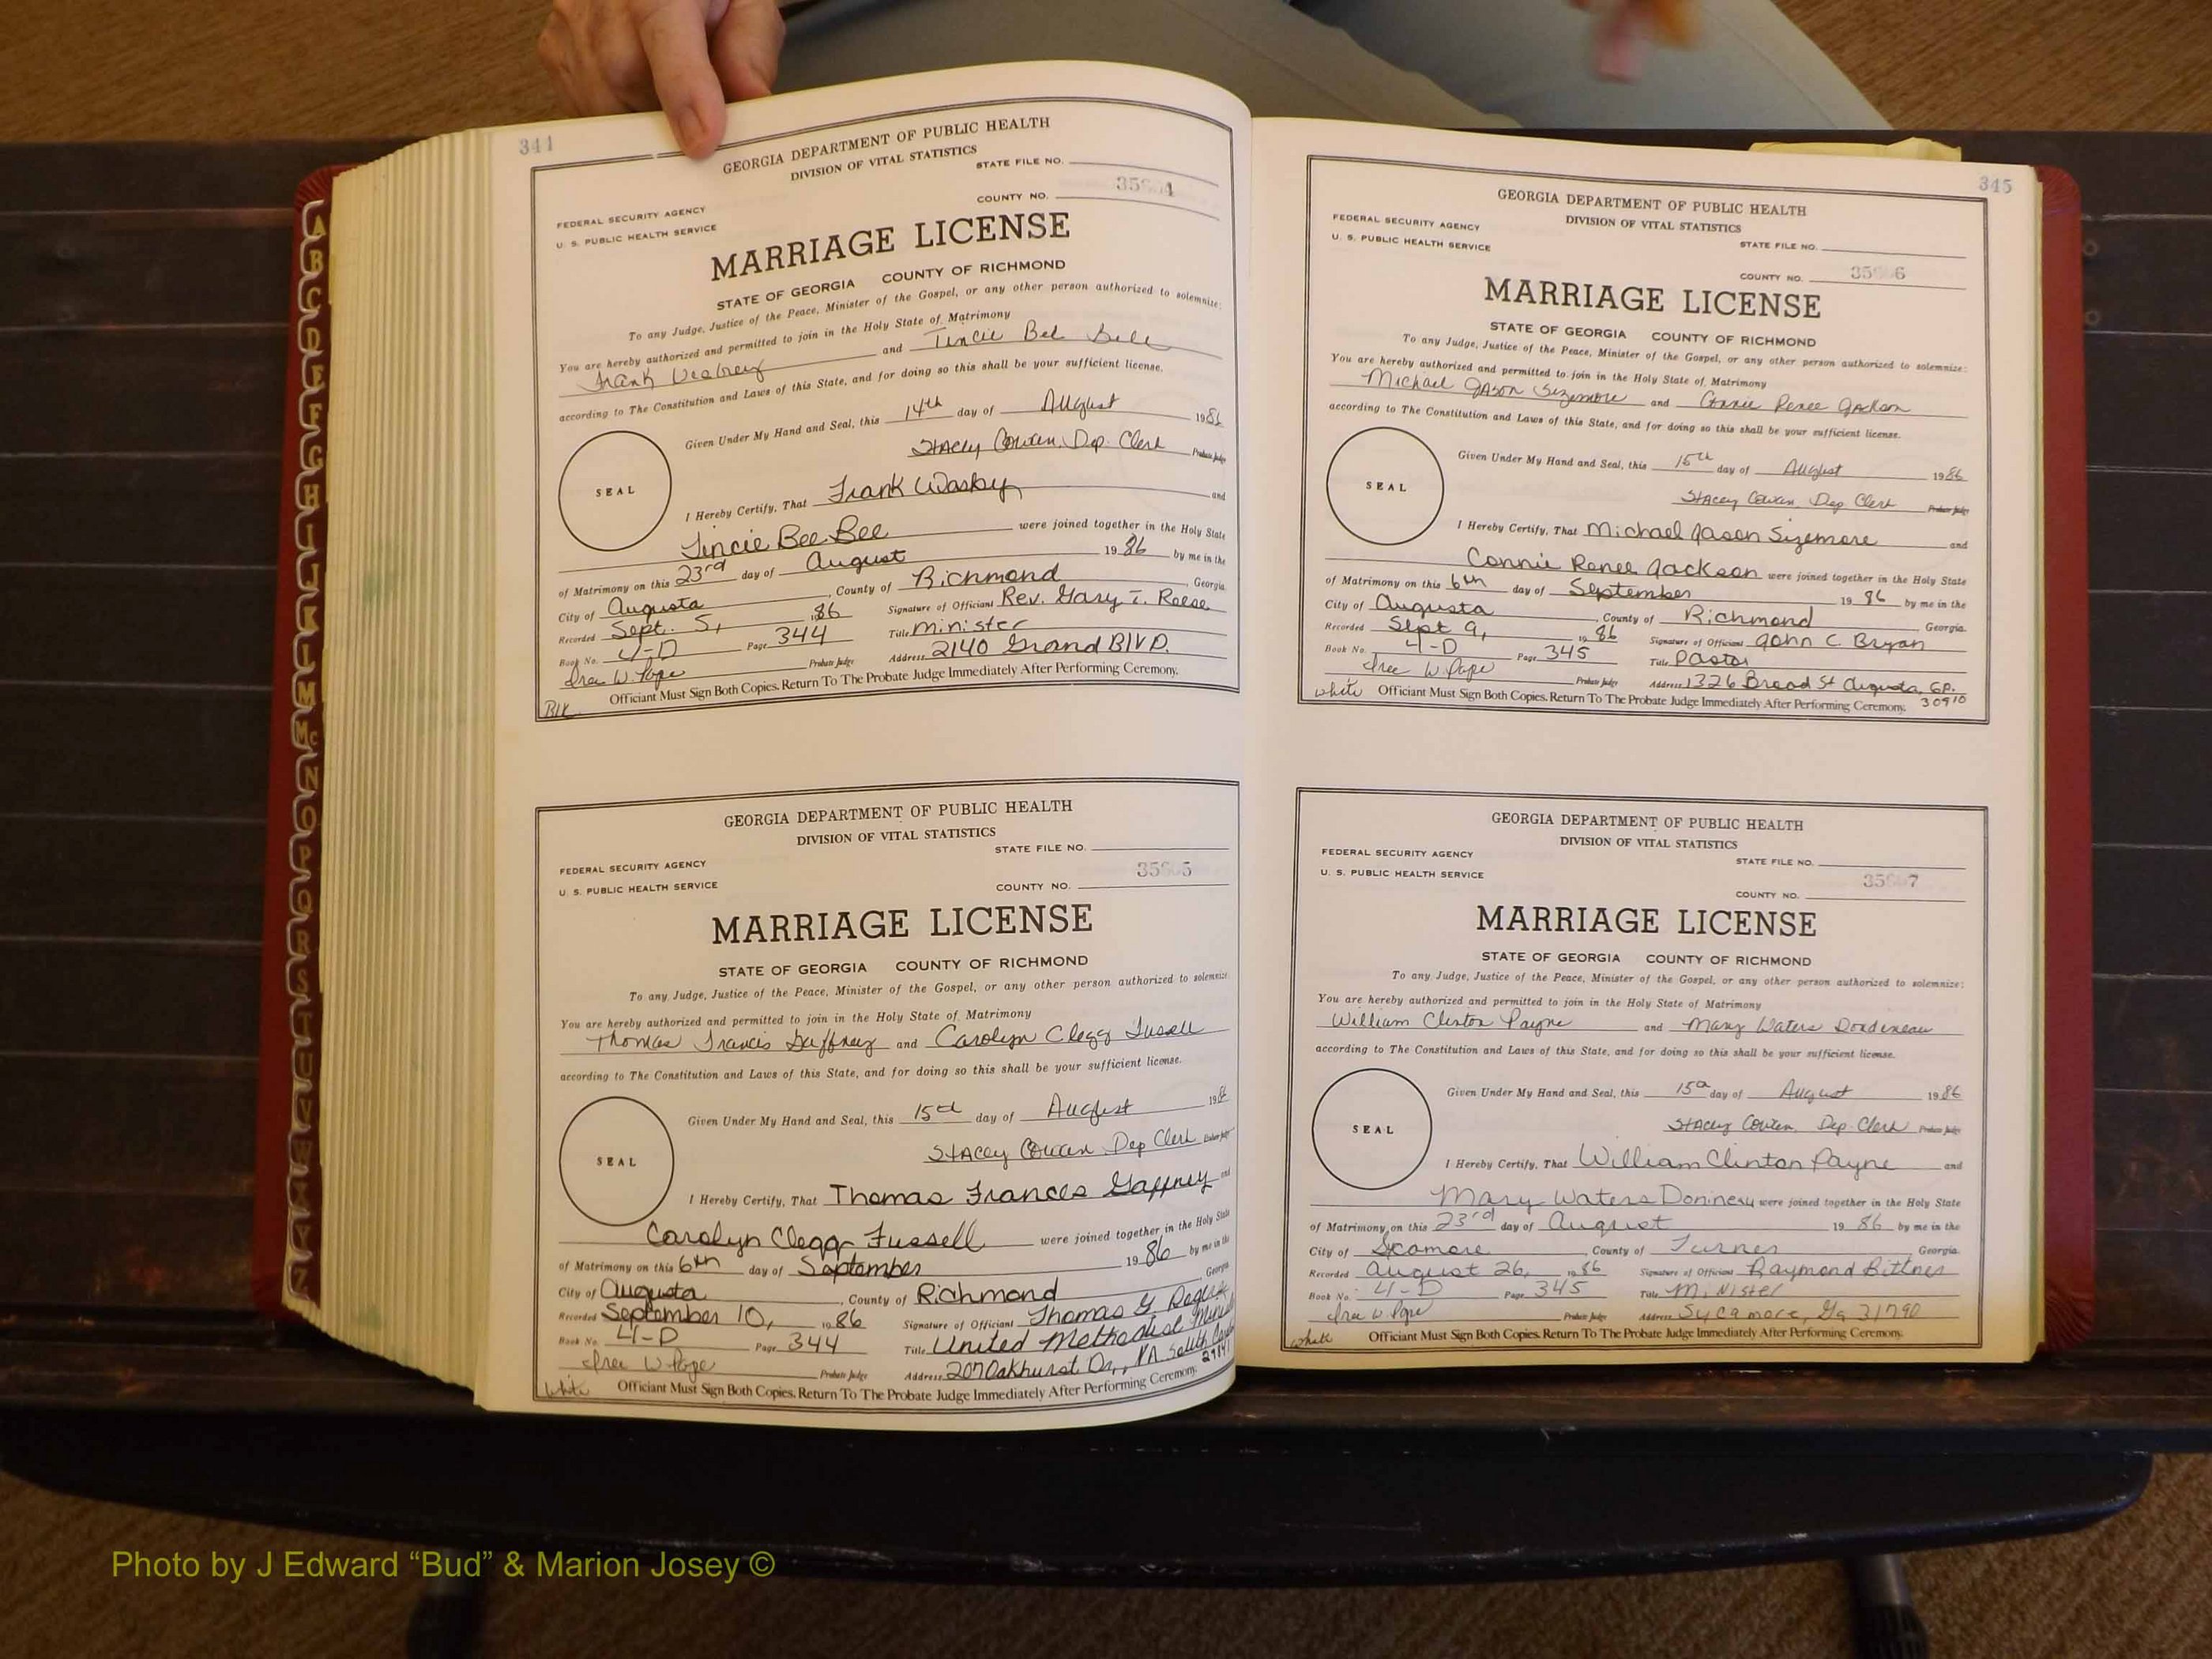 344
GEORGIA DEPARTMENT OF PUBLIC HEALTH
DIVISION OF VITAL STATISTICS
STATE FILE NO.
COUNTY NO.
FEDERAL SECURITY AGENCY
U. S. PUBLIC HEALTH SERVICE
MARRIAGE LICENSE
STATE OF GEORGIA COUNTY OF RICHMOND
To any Judge, Justice of the Peace, Minister of the Gospel, or any other person authorized to solemnize:
You are hereby authorized and permitted to join in the Holy State of Matrimony
Frank and Tincie Bee
according to The Constitution and Laws of this State, and for doing so this shall be your sufficient license.
Given Under My Hand and Seal, this 14th day of August 1986
Stacey Cowan, Dep. Clerk Probate Judge
SEAL
I Hereby Certify, That Frank Wasby and
Tincie Bee Bee were joined together in the Holy State
of Matrimony on this 23rd day of August 19 86 by me in the
City of Augusta, County of Richmond, Georgia.
Recorded Sept. 5, 1986 Signature of Officiant Rev. Gary T. Reese
Book No. 4-D Page 344 Title Minister
W. Pope Probate Judge Address 2140 Grand BLVD.
Blk Officiant Must Sign Both Copies. Return To The Probate Judge Immediately After Performing Ceremony.
GEORGIA DEPARTMENT OF PUBLIC HEALTH
DIVISION OF VITAL STATISTICS
STATE FILE NO.
FEDERAL SECURITY AGENCY
U. S. PUBLIC HEALTH SERVICE
COUNTY NO.
MARRIAGE LICENSE
STATE OF GEORGIA COUNTY OF RICHMOND
To any Judge, Justice of the Peace, Minister of the Gospel, or any other person authorized to solemnize:
You are hereby authorized and permitted to join in the Holy State of Matrimony
Thomas Francis Gaffney and Carolyn Clegg Fussell
according to The Constitution and Laws of this State, and for doing so this shall be your sufficient license.
Given Under My Hand and Seal, this 15th day of August 1986
Stacey Cowan, Dep Clerk Probate Judge
SEAL
I Hereby Certify, That Thomas Frances Gaffney and
Carolyn Clegg Fussell were joined together in the Holy State
of Matrimony on this 6th day of September 19 86 by me in the
City of Augusta, County of Richmond, Georgia
Recorded September 10, 1986 Signature of Officiant Thomas G.
Book No. 4-D Page 344 Title United Methodist
W Pope Probate Judge Address 207 Oakhurst Dr., N.A. South
White Officiant Must Sign Both Copies. Return To The Probate Judge Immediately After Performing Ceremony.
345
GEORGIA DEPARTMENT OF PUBLIC HEALTH
DIVISION OF VITAL STATISTICS
FEDERAL SECURITY AGENCY
U. S. PUBLIC HEALTH SERVICE
STATE FILE NO.
COUNTY NO.
MARRIAGE LICENSE
STATE OF GEORGIA COUNTY OF RICHMOND
To any Judge, Justice of the Peace, Minister of the Gospel, or any other person authorized to solemnize:
You are hereby authorized and permitted to join in the Holy State of Matrimony
Michael Jason Sizemore and Connie Renee Jackson
according to The Constitution and Laws of this State, and for doing so this shall be your sufficient license.
Given Under My Hand and Seal, this 15th day of August 1986
Stacey Cowan, Dep Clerk Probate Judge
SEAL
I Hereby Certify, That Michael Jason Sizemore and
Connie Renee Jackson were joined together in the Holy State
of Matrimony on this 6th day of September 19 86 by me in the
City of Augusta, County of Richmond Georgia.
Recorded Sept 9, 1986 Signature of Officiant John C. Bryan
Book No. 4-D Page 345 Title Pastor
W Pope Probate Judge Address 1326 Broad St Augusta, GA. 30910
White Officiant Must Sign Both Copies. Return To The Probate Judge Immediately After Performing Ceremony.
GEORGIA DEPARTMENT OF PUBLIC HEALTH
DIVISION OF VITAL STATISTICS
FEDERAL SECURITY AGENCY
STATE FILE NO.
U. S. PUBLIC HEALTH SERVICE
COUNTY NO.
MARRIAGE LICENSE
STATE OF GEORGIA COUNTY OF RICHMOND
To any Judge, Justice of the Peace, Minister of the Gospel, or any other person authorized to solemnize:
You are hereby authorized and permitted to join in the Holy State of Matrimony
William Clinton Payne and Mary Waters
according to The Constitution and Laws of this State, and for doing so this shall be your sufficient license.
Given Under My Hand and Seal, this 15th day of August 1986
Stacey Cowan, Dep. Clerk Probate Judge
SEAL
I Hereby Certify, That William Clinton Payne and
Mary Waters were joined together in the Holy State
of Matrimony on this 23rd day of August 19 86 by me in the
City of Sycamore, County of Turner, Georgia.
Recorded August 26, 1986 Signature of Officiant Raymond Bittner
Book No. 4-D Page 345 Title Minister
W Pope Probate Judge Address Sycamore, Ga 31790
White Officiant Must Sign Both Copies. Return To The Probate Judge Immediately After Performing Ceremony.
A
B
C
D
E
F
G
H
I
J
K
L
M
Mc
N
O
P
Q
R
S
T
U
V
W
X
Y
Z
Photo by J Edward “Bud” & Marion Josey ©